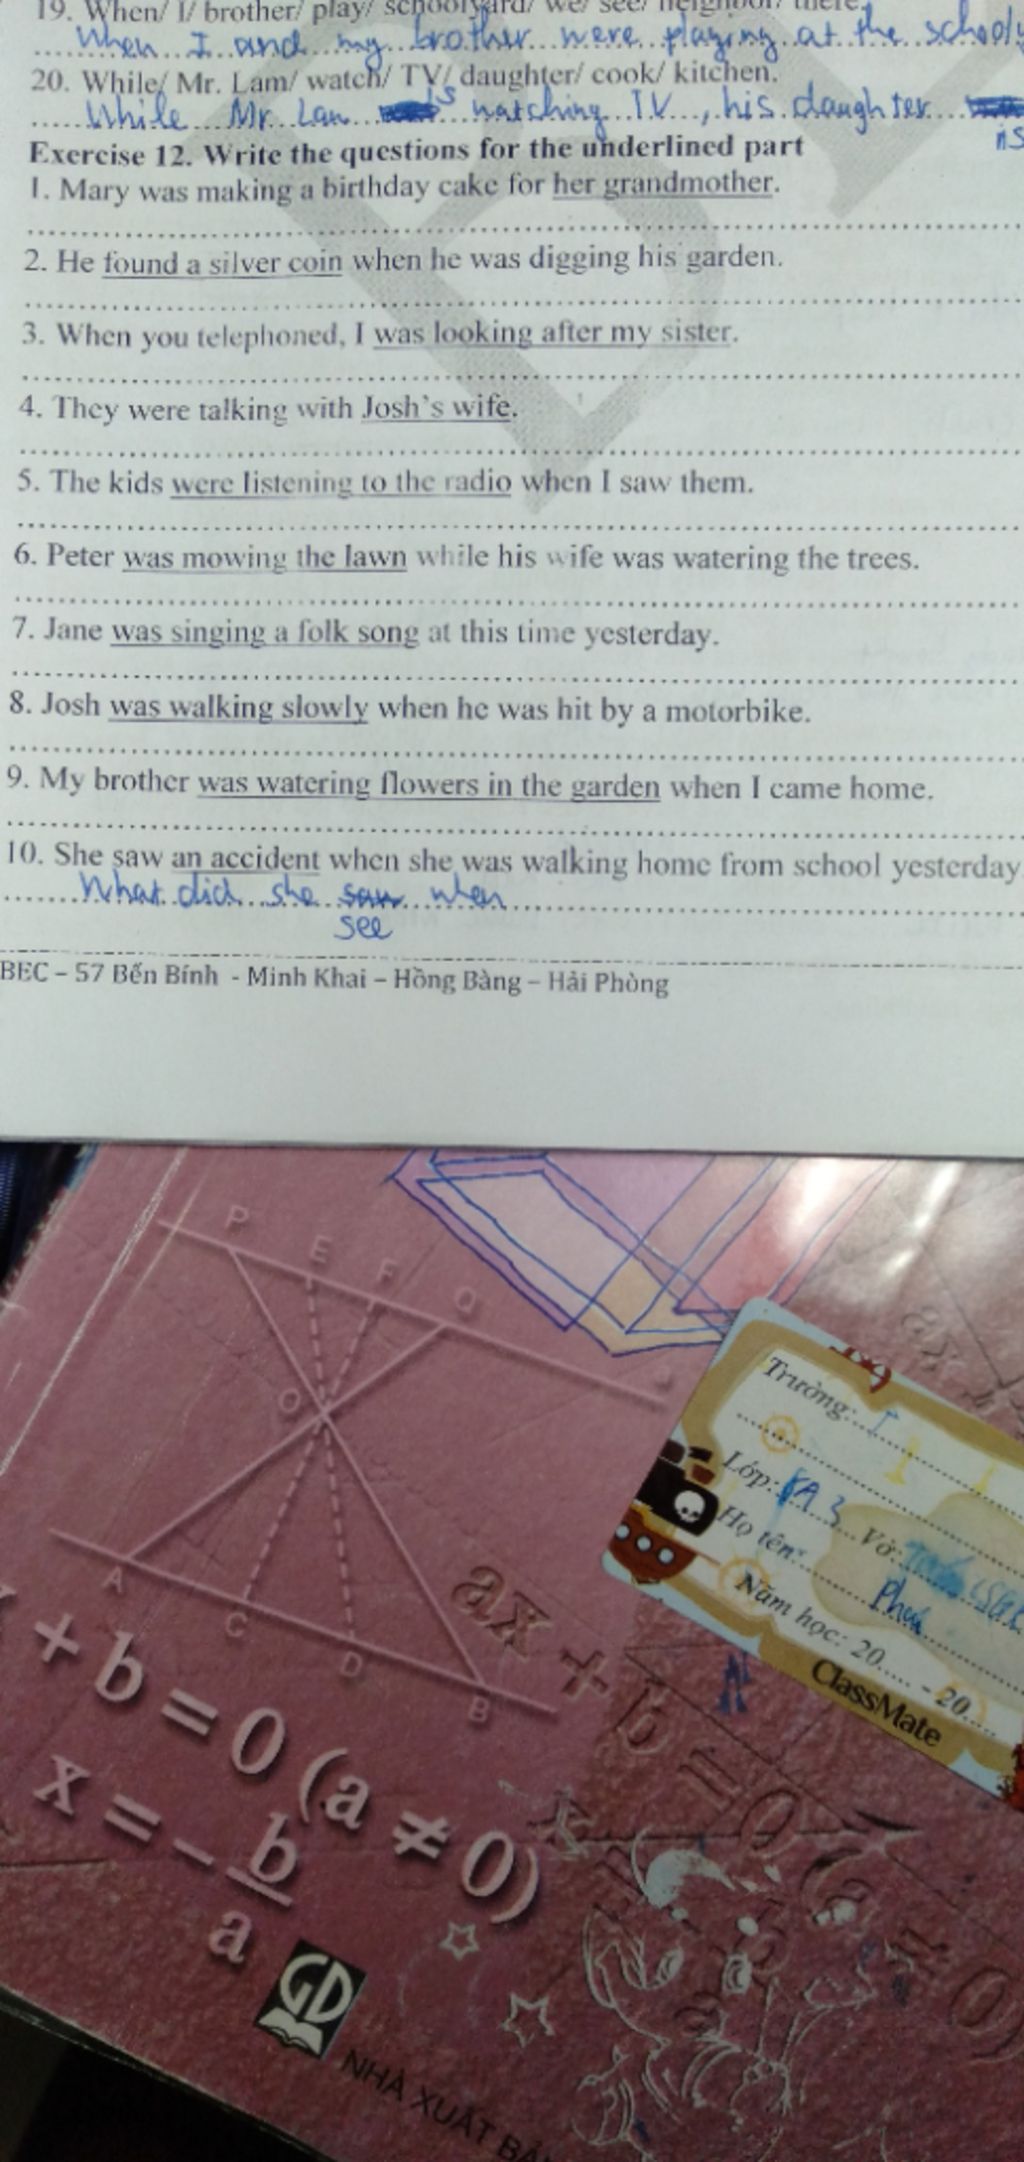 19. When/ I/ brother/ play/ schoolyard/ we/ see/ neighbor/ there.
When I and my brother were playing at the schooly
20. While/ Mr. Lam/ watch/ TV/ daughter/ cook/ kitchen.
While Mr. Lam is watching TV, his daughter is
Exercise 12. Write the questions for the underlined part
1. Mary was making a birthday cake for her grandmother.
2. He found a silver coin when he was digging his garden.
3. When you telephoned, I was looking after my sister.
4. They were talking with Josh's wife.
5. The kids were listening to the radio when I saw them.
6. Peter was mowing the lawn while his wife was watering the trees.
7. Jane was singing a folk song at this time yesterday.
8. Josh was walking slowly when he was hit by a motorbike.
9. My brother was watering flowers in the garden when I came home.
10. She saw an accident when she was walking home from school yesterday
What did she saw when
see
BEC – 57 Bến Bính - Minh Khai – Hồng Bàng – Hải Phòng
P E F Q
O
A C D B
ax + b = 0
+ b = 0 (a ≠ 0)
x = - b
a
Trường:
Lớp: 8A3 Vở:
Họ tên: Phúc
Năm học: 20..... - 20.....
ClassMate
GD
NHÀ XUẤT BẢ